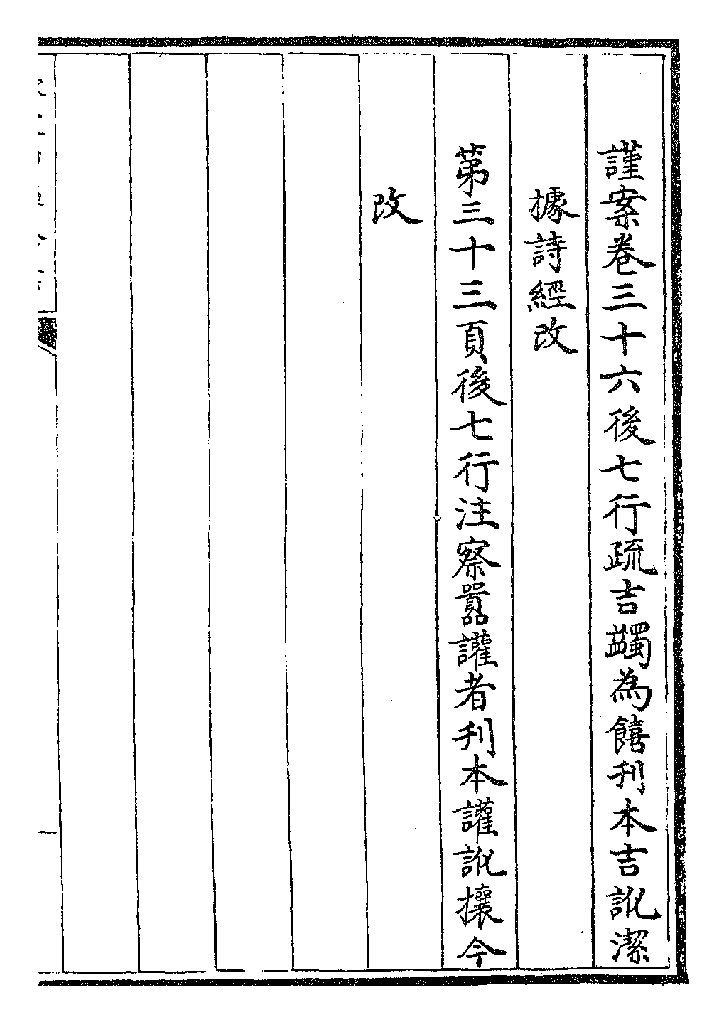 謹案卷三十六後七行疏吉蠲為饎刊本吉訛潔
據詩經改
第三十三頁後七行注察囂讙者刊本讙訛攘今
改